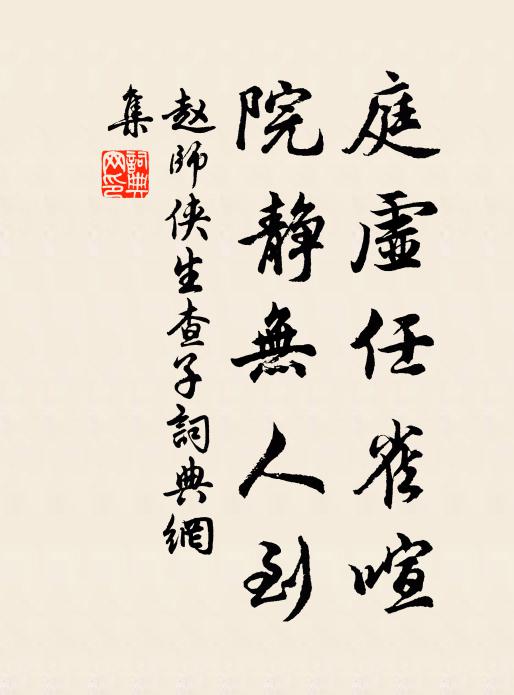 庭虛任雀喧
院靜無人到
赵師侠生查子詞典網
集
詞典
网印